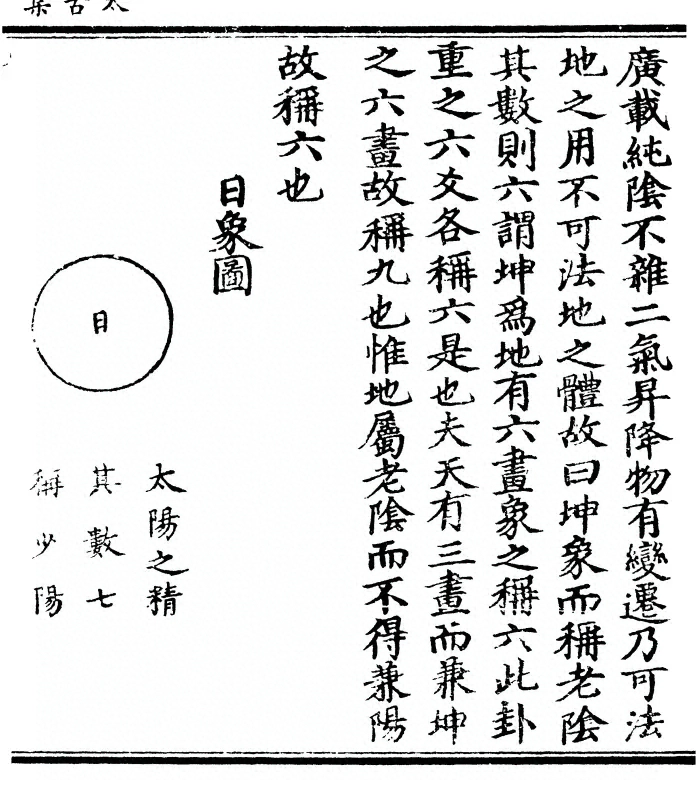 太古集
廣載純陰不雜二氣昇降物有變遷乃可法
地之用不可法地之體故曰坤象而稱老陰
其數則六謂坤爲地有六畫象之稱六此卦
重之六爻各稱六是也夫天有三畫而兼坤
之六畫故稱九也惟地屬老陰而不得兼陽
故稱六也
日象圖
日
太陽之精
其數七
稱少陽